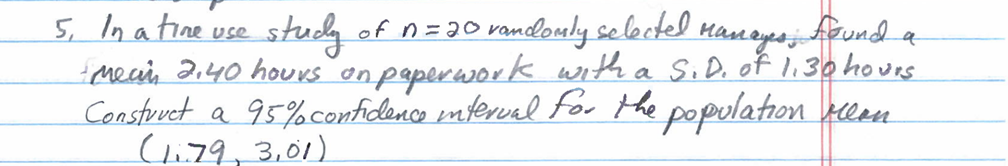 5. In a time use study of n=20 randomly selected Manages, found a
mean 2.40 hours on paperwork with a S.D. of 1.30 hours
Construct a 95% confidence interval for the population Mean
(1.79, 3.01)